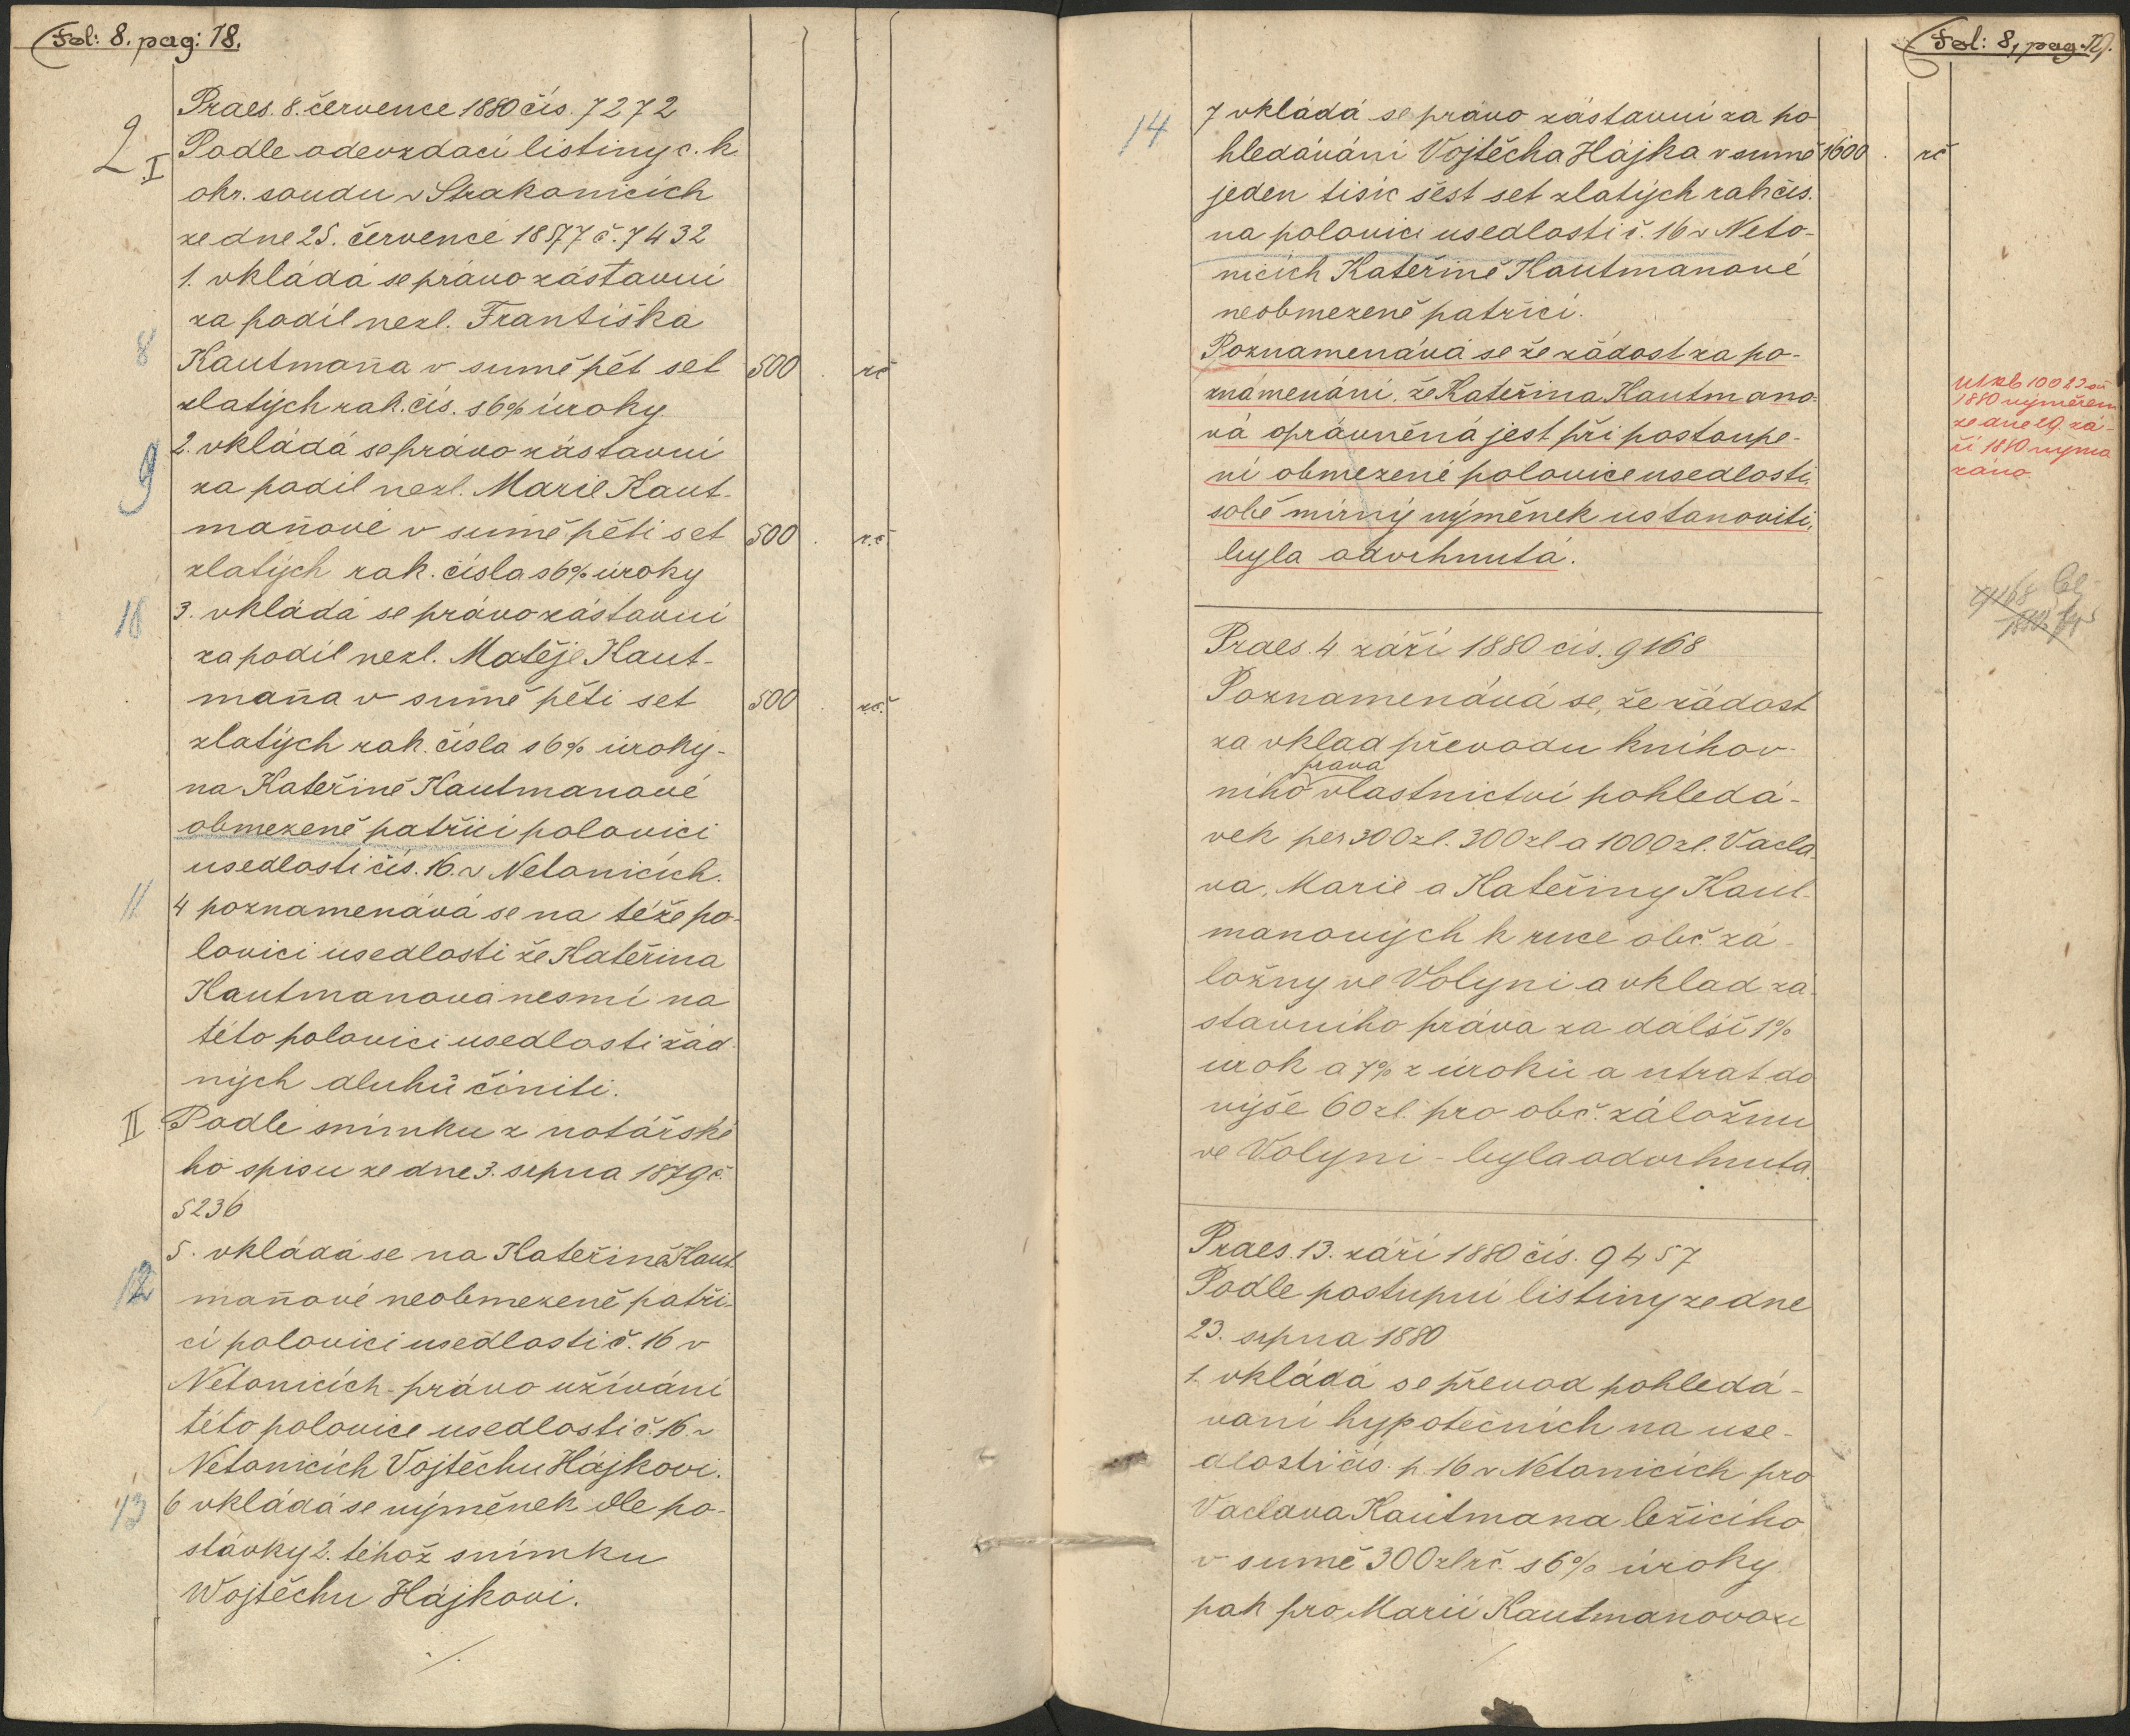 Fol: 8. pag: 18.
Praes. 8. července 1880 čís. 7272
2 I Podle odevzdací listiny c. k
okr. soudu v Strakonicích
ze dne 25. července 1877 č. 7432
1. vkládá se právo zástavní
za podíl nezl. Františka
8 Kautmaňa v sumě pět set 500 . rč
zlatých rak. čís. s 6% úroky
9 2. vkládá se právo zástavní
za podíl nezl. Marie Kaut-
maňové v sumě pěti set 500 . r.č
zlatých rak. čísla s 6% úroky
10 3. vkládá se právo zástavní
za podíl nezl. Matěje Kaut-
maňa v sumě pěti set 500 . r.č.
zlatých rak. čísla s 6% úroky-
na Kateřině Kautmanové
obmezeně patřící polovici
usedlosti čís. 16. v Netonicích.
11 4 poznamenává se na téže po-
lovici usedlosti že Kateřina
Kautmanová nesmí na
této polovici usedlosti žád-
ných dluhů činiti.
II Podle snímku z notářské
ho spisu ze dne 3. srpna 1879 č.
5236
5. vkládá se na Kateřině Kaut
12 maňové neobmezeně patří-
cí polovici usedlosti č. 16 v
Netonicích - právo užívání
této polovice usedlosti č. 16. v
Netonicích Vojtěchu Hájkovi.
13 6 vkládá se výměnek dle po-
stávky 2. téhož snímku
Wojtěchu Hájkovi.
./.
Fol: 8, pag. 19.
14 7 vkládá se právo zástavní za po
hledávání Vojtěcha Hájka v sumě 1600 . rč
jeden tisíc šest set zlatých rak čis.
na polovici usedlosti č. 16 v Neto-
nicích Kateřině Kautmanové
neobmezeně patřící.
Poznamenává se že žádost za po-
známenání, že Kateřina Kautmano-
vá oprávněná jest při postoupe-
ní obmezené polovice usedlosti,
sobě mírný výměnek ustanoviti,
byla odvrhnutá.
1880 výměrem
ze dne 29. zá-
ří 1880 vyma
záno.
Praes. 4 září 1880 čís. 9168
9168
Poznamenává se, že žádost
za vklad převodu knihov-
práva
ního vlastnictví pohledá-
vek per 300 zl. 300 zl a 1000 zl. Václa
va, Marie a Kateřiny Kaut-
manových k ruce obč. zá-
ložny ve Volyni a vklad zá-
stavního práva za další 1%
úrok a 7% z úroků a útrat do
výše 60 zl. pro obč. záložnu
ve Volyni - byla odvrhnuta.
Praes. 13. září 1880 čís. 9457
Podle postupní listiny ze dne
23. srpna 1880
1. vkládá se převod pohledá-
vaní hypotečních na use-
dlosti čís. p. 16 v Netonicích pro
Vaclava Kautmana ležícího
v sumě 300 zl rč. s 6% úroky
pak pro Marii Kautmanovou